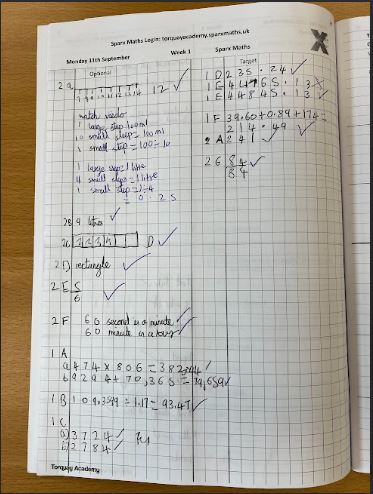 Sparx Maths Login: torquayacademy.sparxmaths.uk
Monday 11th September Week 1 Sparx Maths
Optional
2 a 12
7 8 9 10 11 12 13 14
watch video
1 large step 100ml
10 small steps = 100ml
1 small step = 100÷10
1 large step = 1 litre
4 small steps = 1 litre
1 small step = 1÷4
= 0.25
2B 9 litres
2C D
2D rectangle
2E 5/6
2F 60 second in a minute
60 minute in a hour
1 A
a 474 x 806 = 382,044
b 9294 + 70,365 = 79,659
1B 109,3599 ÷ 1.17 = 93.47
1 C
a) 3724
b) 2784
Torquay Academy
Target
1D 235.24
1E 44765.13
1E 44845.13
1F 39.60+0.89+174=
214.49
2A 241
2G 84
84